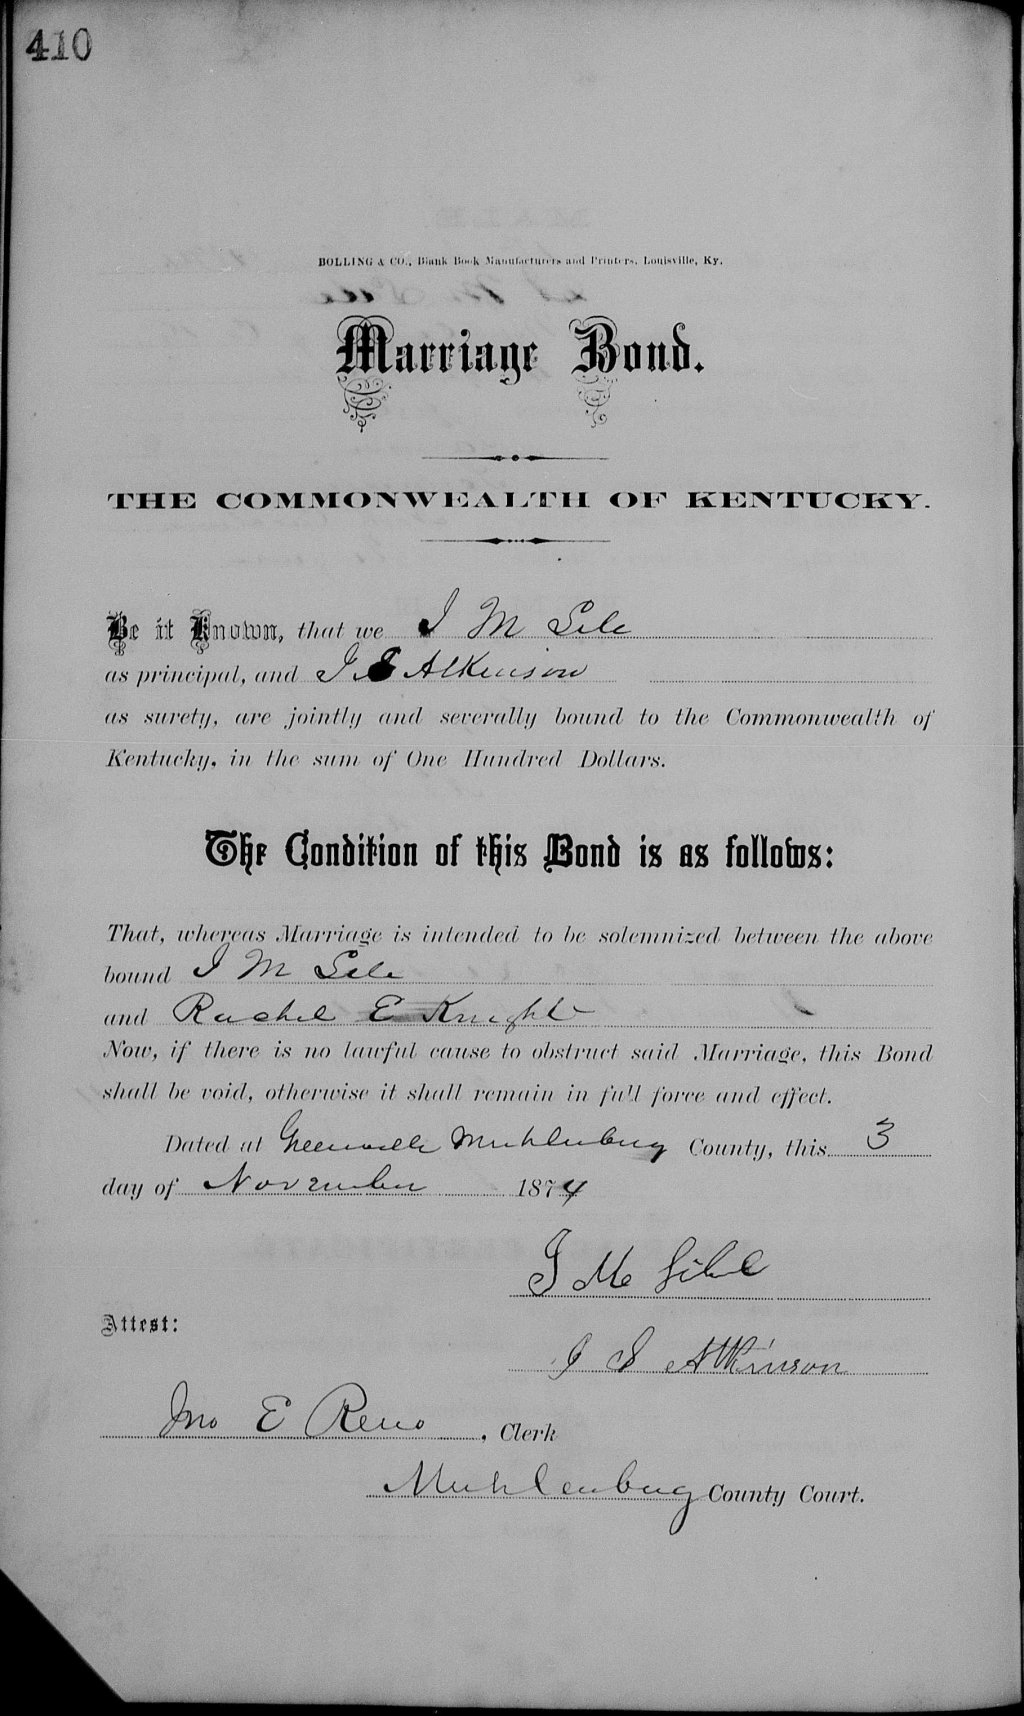 410
BOLLING & CO., Blank Book Manufacturers and Printers, Louisville, Ky.
Marriage Bond.
THE COMMONWEALTH OF KENTUCKY.
Be it Known, that we J M
as principal, and J S Atkinson
as surety, are jointly and severally bound to the Commonwealth of
Kentucky, in the sum of One Hundred Dollars.
The Condition of this Bond is as follows:
That, whereas Marriage is intended to be solemnized between the above
bound J M
and Rachel E Knight
Now, if there is no lawful cause to obstruct said Marriage, this Bond
shall be void, otherwise it shall remain in full force and effect.
Dated at Greenville Muhlenburg County, this 3
day of November 1874
J M
Attest:
J S Atkinson
Jno E Reno, Clerk
Muhlenburg County Court.